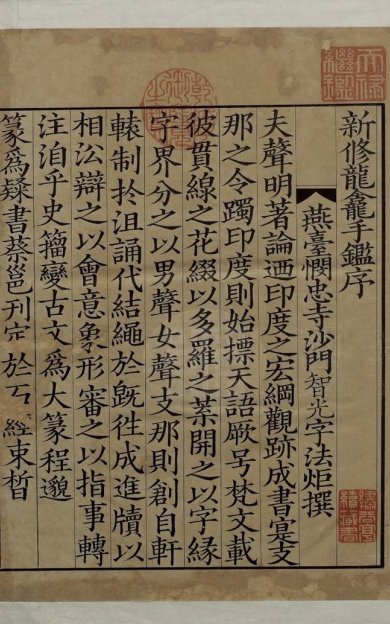 新修龍龕手鑑序
燕臺憫忠寺沙門智光字法炬撰
夫聲明著論迺印度之宏綱觀跡成書寔支
那之令躅印度則始摽天語厥号梵文載
彼貫線之花綴以多羅之葉開之以字緣
字界分之以男聲女聲支那則創自軒
轅制扵沮誦代結繩於旣徃成進牘以
相訟辯之以會意象形審之以指事轉
注洎乎史籀變古文爲大篆程邈
篆爲隸書蔡邕刊定於石經束皙
天祿繼鑑